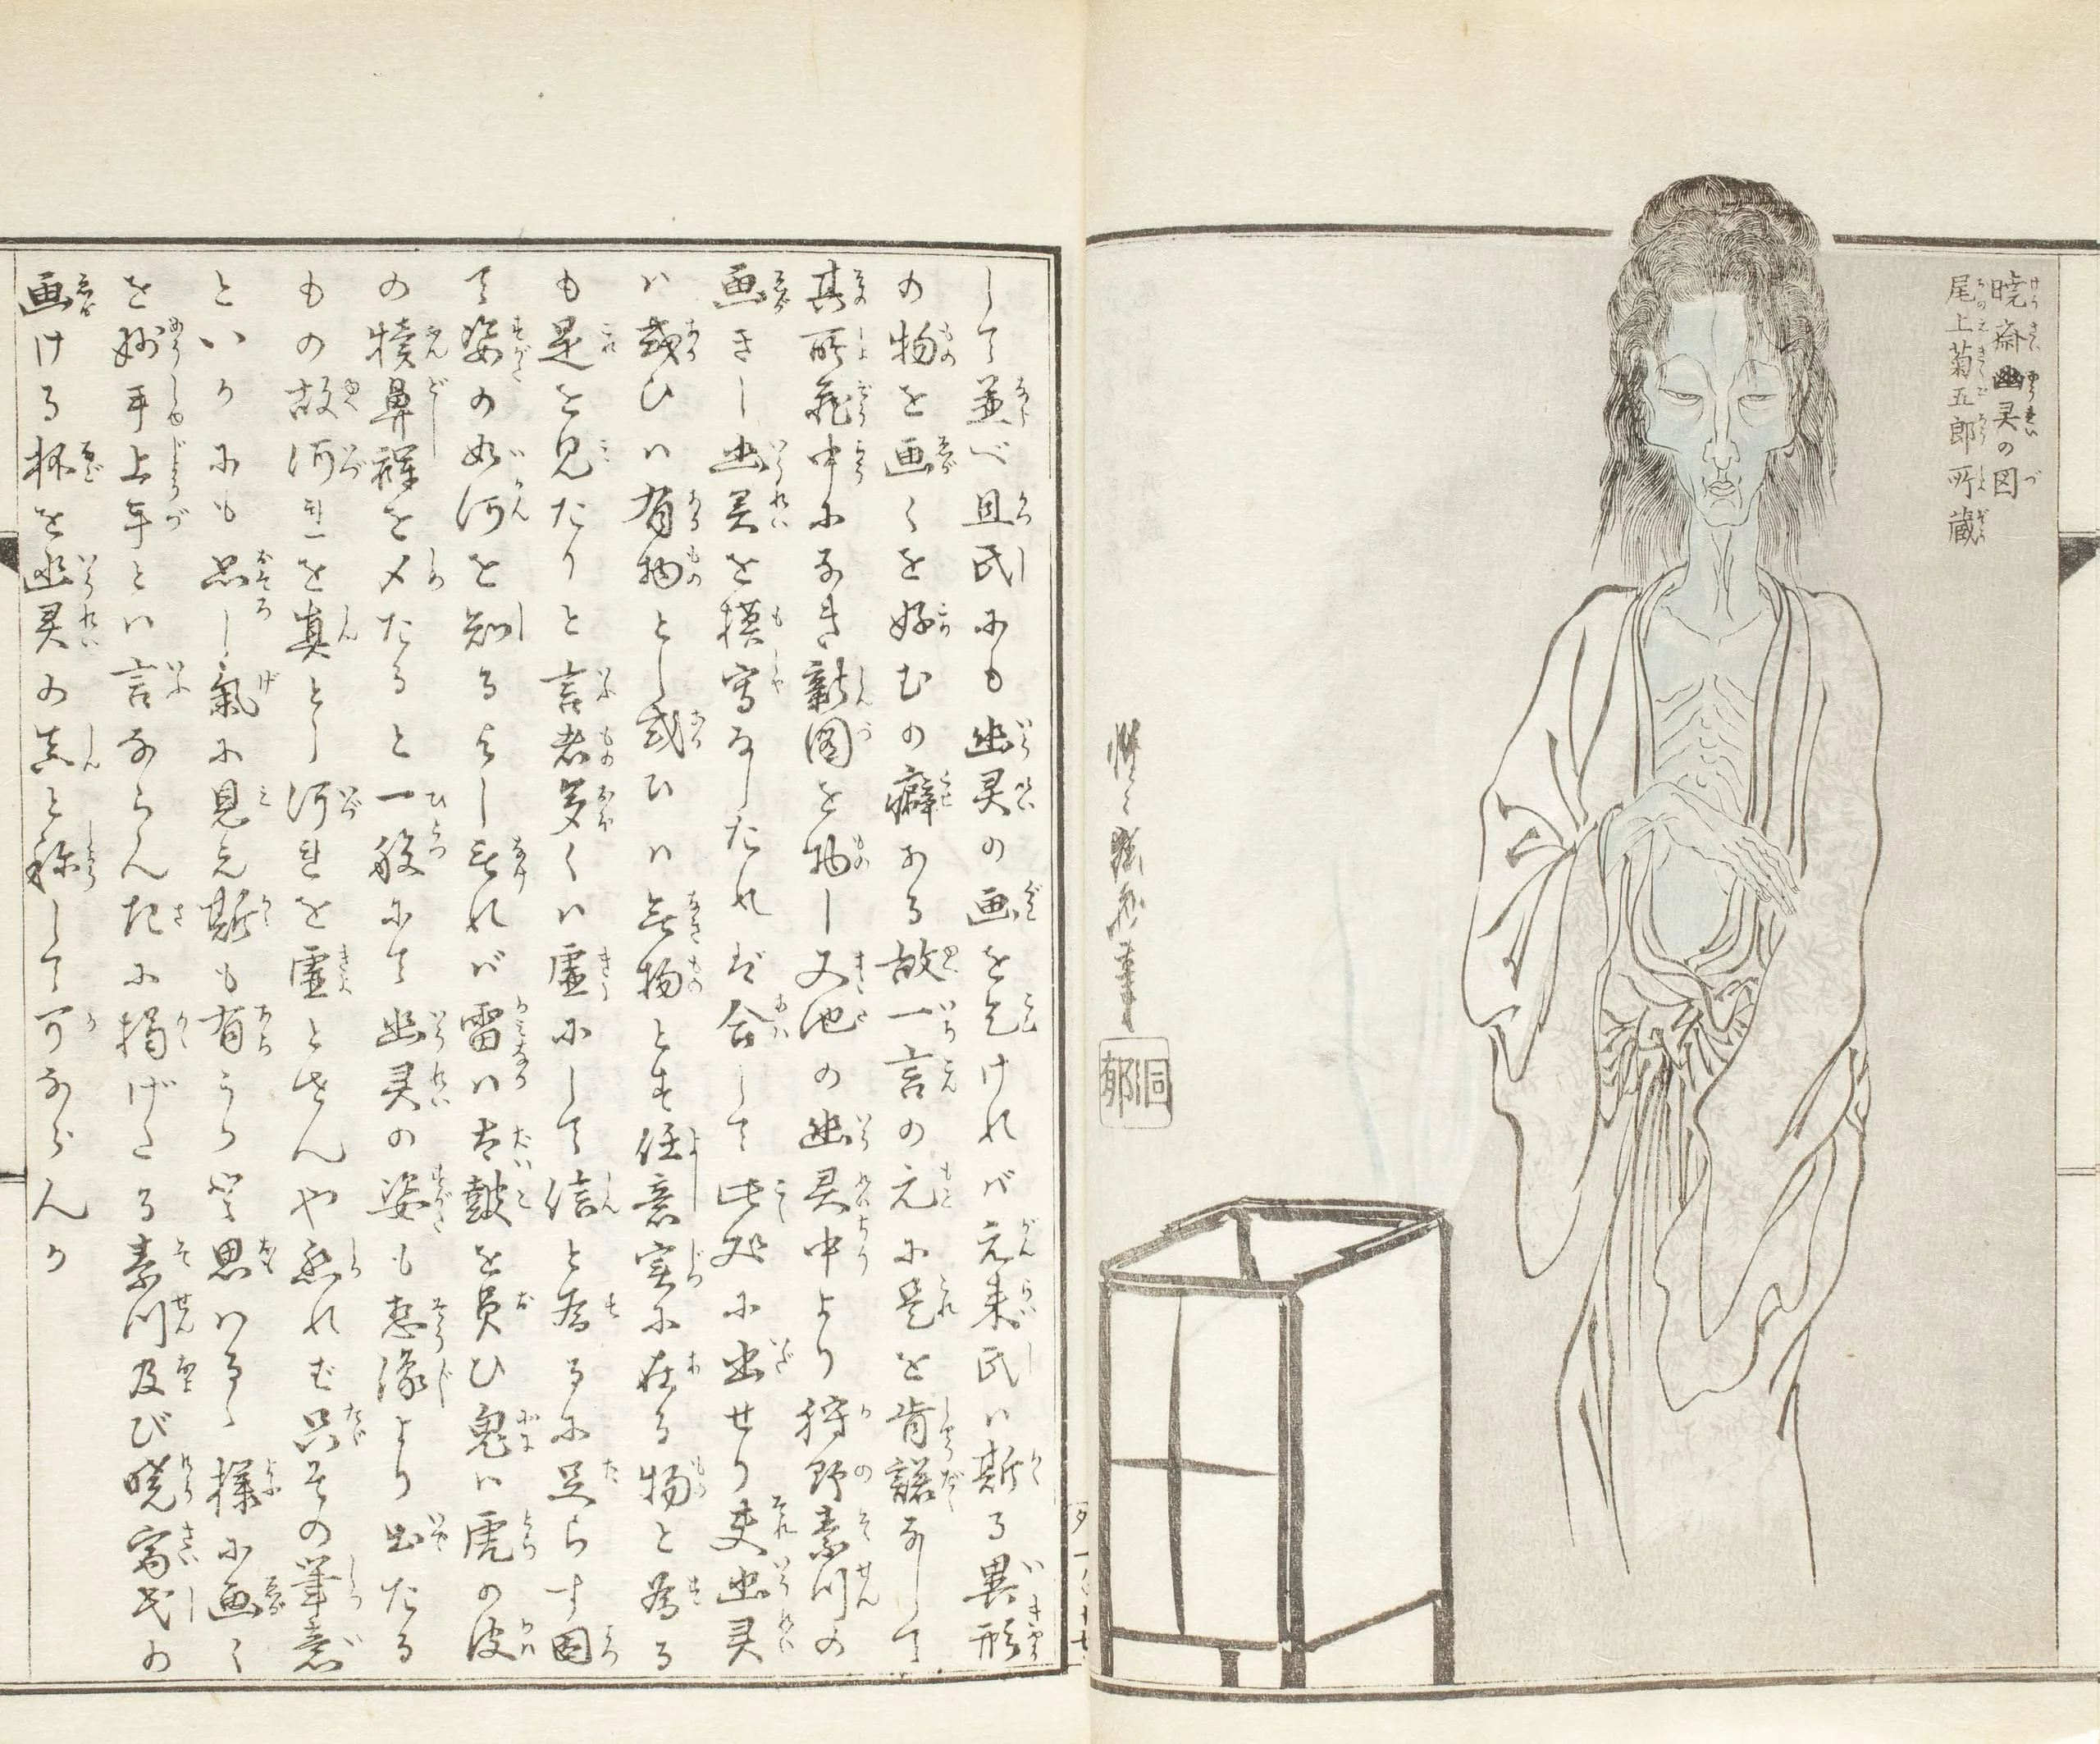 暁斎幽灵の図
尾上菊五郎所蔵
惺々暁斎筆
洞郁
して並べ且氏にも幽灵の画を乞けれバ元来氏ハ斯る異形
の物を画くを好むの癖ある故一言の元に是を肯諾なして
其所蔵中になき新図を物し又池の幽灵中より狩野素川の
画きし幽灵を模写なしたれば合して此処に出せり夫幽灵
ハ或ひハ有物とし或ひハ無物とも任意実に在る物と為る
も是を見たりと言者多くハ虚にして信と為るに足らす固
て姿の如何を知るよし無れバ雷ハ太鼓を負ひ鬼ハ虎の皮
の犢鼻褌を〆たると一般にて幽灵の姿も想像より出たる
もの故河れを真とし河れを虚とせんや然れど只その筆意
といひにも恐し氣に見え斯も有うかと思ハるゝ様に画く
を妙手上手とハ言ならんたに掲げたる素川及び暁斎氏の
画ける杯を幽灵の真と称して可ならんか